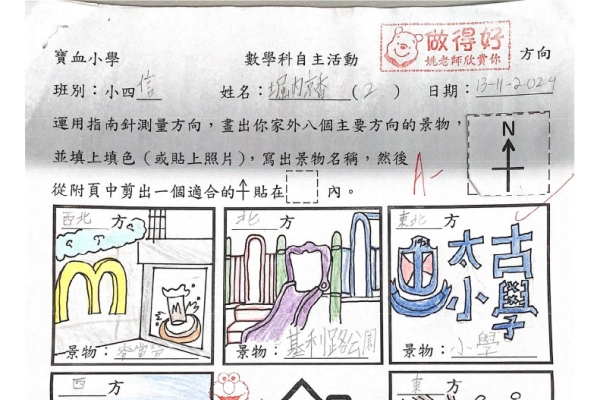 做得好
姚老師欣賞你
寶血小學 數學科自主活動 方向
班別：小四信 姓名：堀內京香(2) 日期：13-11-2024
運用指南針測量方向，畫出你家外八個主要方向的景物，
並填上填色（或貼上照片），寫出景物名稱，然後
從附頁中剪出一個適合的↑貼在 內。
N
A-
西北方 北方 東北方
M
M
太古
小學
景物：麥當勞 景物：基利路公園 景物：小學
西方 東方